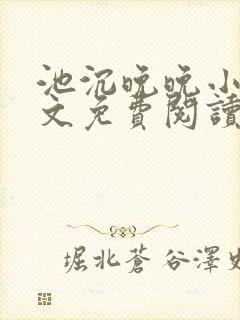 池沉晚晚小
文免費閱讀
堀北蒼谷澤